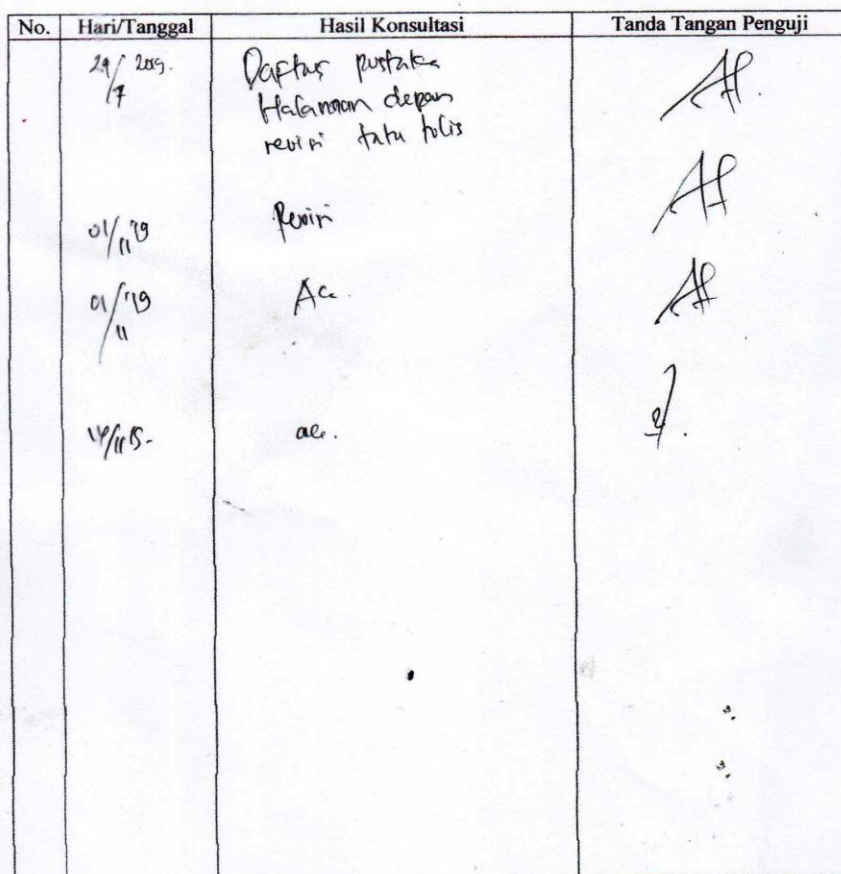 No. Hari/Tanggal Hasil Konsultasi Tanda Tangan Penguji
29/7 2019. Daftar pustaka
Halaman depan
revisi tata tulis
01/11 '19 Revisi
01/11 '19 Acc.
/11 acc.